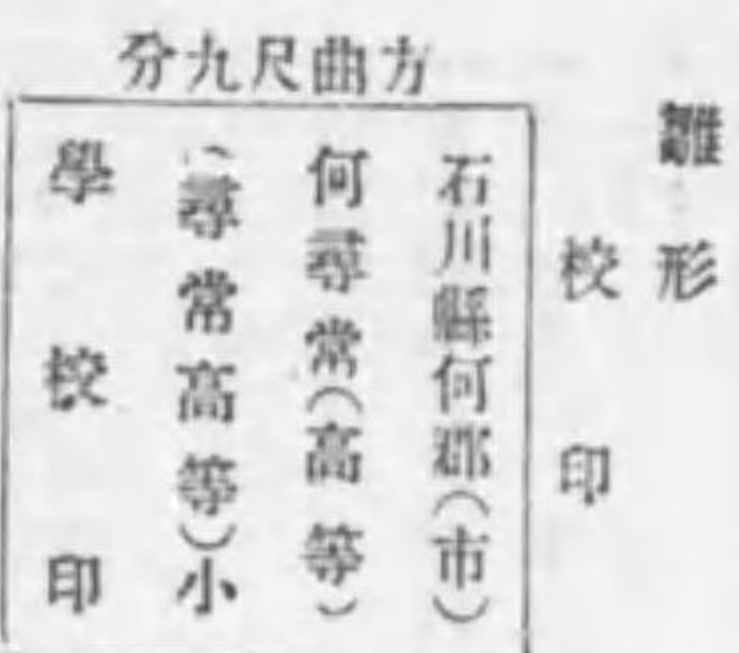 雛形
校印
方曲尺九分
石川縣何郡(市)
何尋常(高等)
(尋常高等)小
學校印